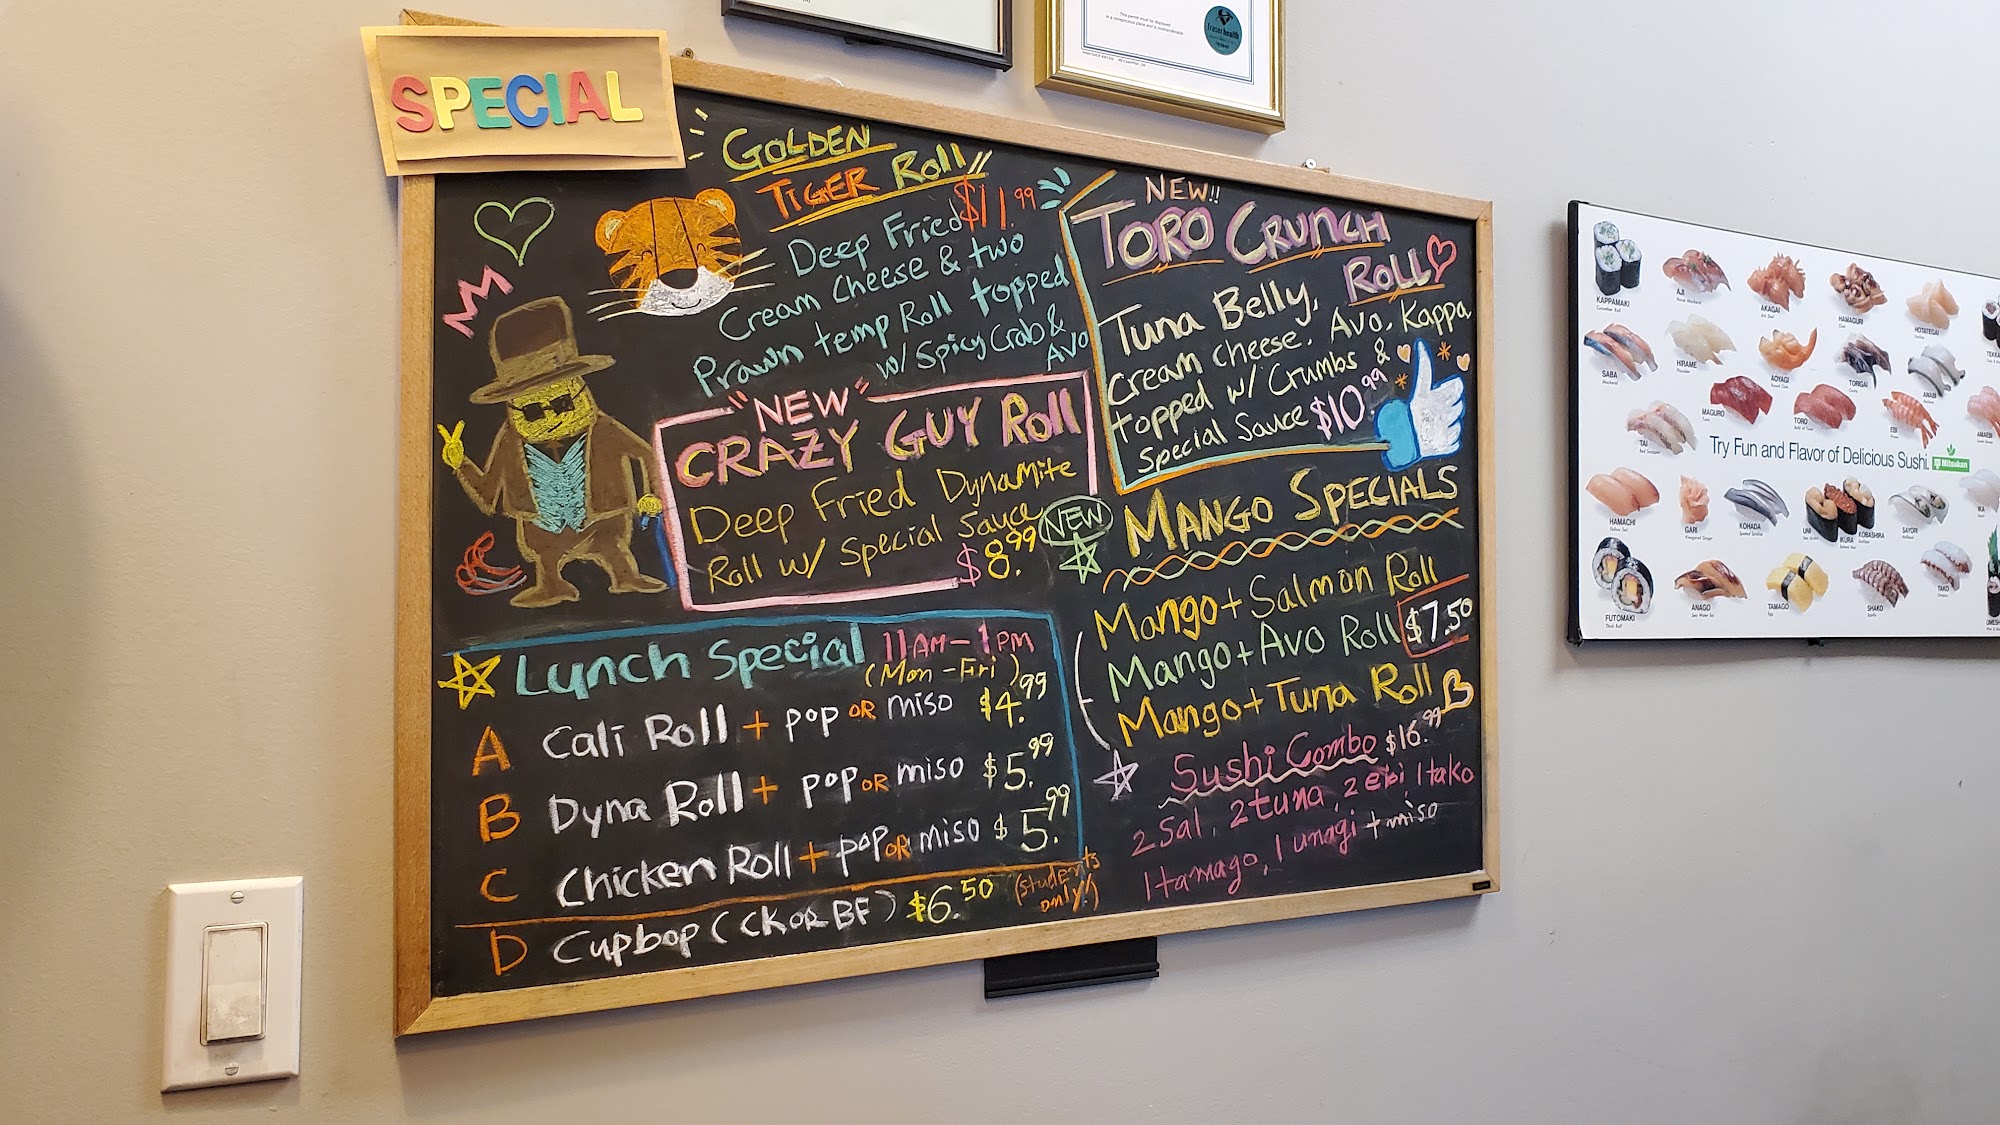 SPECIAL
GOLDEN
TIGER Roll
$11.99
Deep Fried
Cream Cheese & two
Prawn temp Roll topped
w/ Spicy Crab &
Avo
"NEW"
CRAZY GUY Roll
Deep Fried Dynamite
Roll w/ Special Sauce
$8.99
Lunch Special 11AM-1PM
(Mon-Fri)
A Cali Roll + pop OR miso $4.99
B Dyna Roll + pop OR miso $5.99
C Chicken Roll + pop OR miso $5.99
D Cupbop (CK OR BF) $6.50 (students only!)
NEW!!
TORO CRUNCH
ROLL
Tuna Belly,
Cream cheese. Avo. Kappa
topped w/ Crumbs &
Special Sauce $10.99
NEW
MANGO SPECIALS
Mango + Salmon Roll
Mango + Avo Roll $7.50
Mango + Tuna Roll
Sushi Combo $16.99
2 Sal, 2 tuna, 2 ebi, 1 tako
1 tamago, 1 unagi + miso
This permit must be displayed
in a conspicuous place and is nontransferable
fraserhealth
KAPPAMAKI
AJI
AKAGAI
HAMAGURI
HOTATEGAI
SABA
HIRAME
AOYAGI
TORIGAI
AWABI
TAI
MAGURO
TORO
EBI
AMAEBI
Try Fun and Flavor of Delicious Sushi. Mitsukan
HAMACHI
GARI
KOHADA
UNI
IKURA
KOBASHIRA
SAYORI
IKA
FUTOMAKI
ANAGO
TAMAGO
SHAKO
TAKO